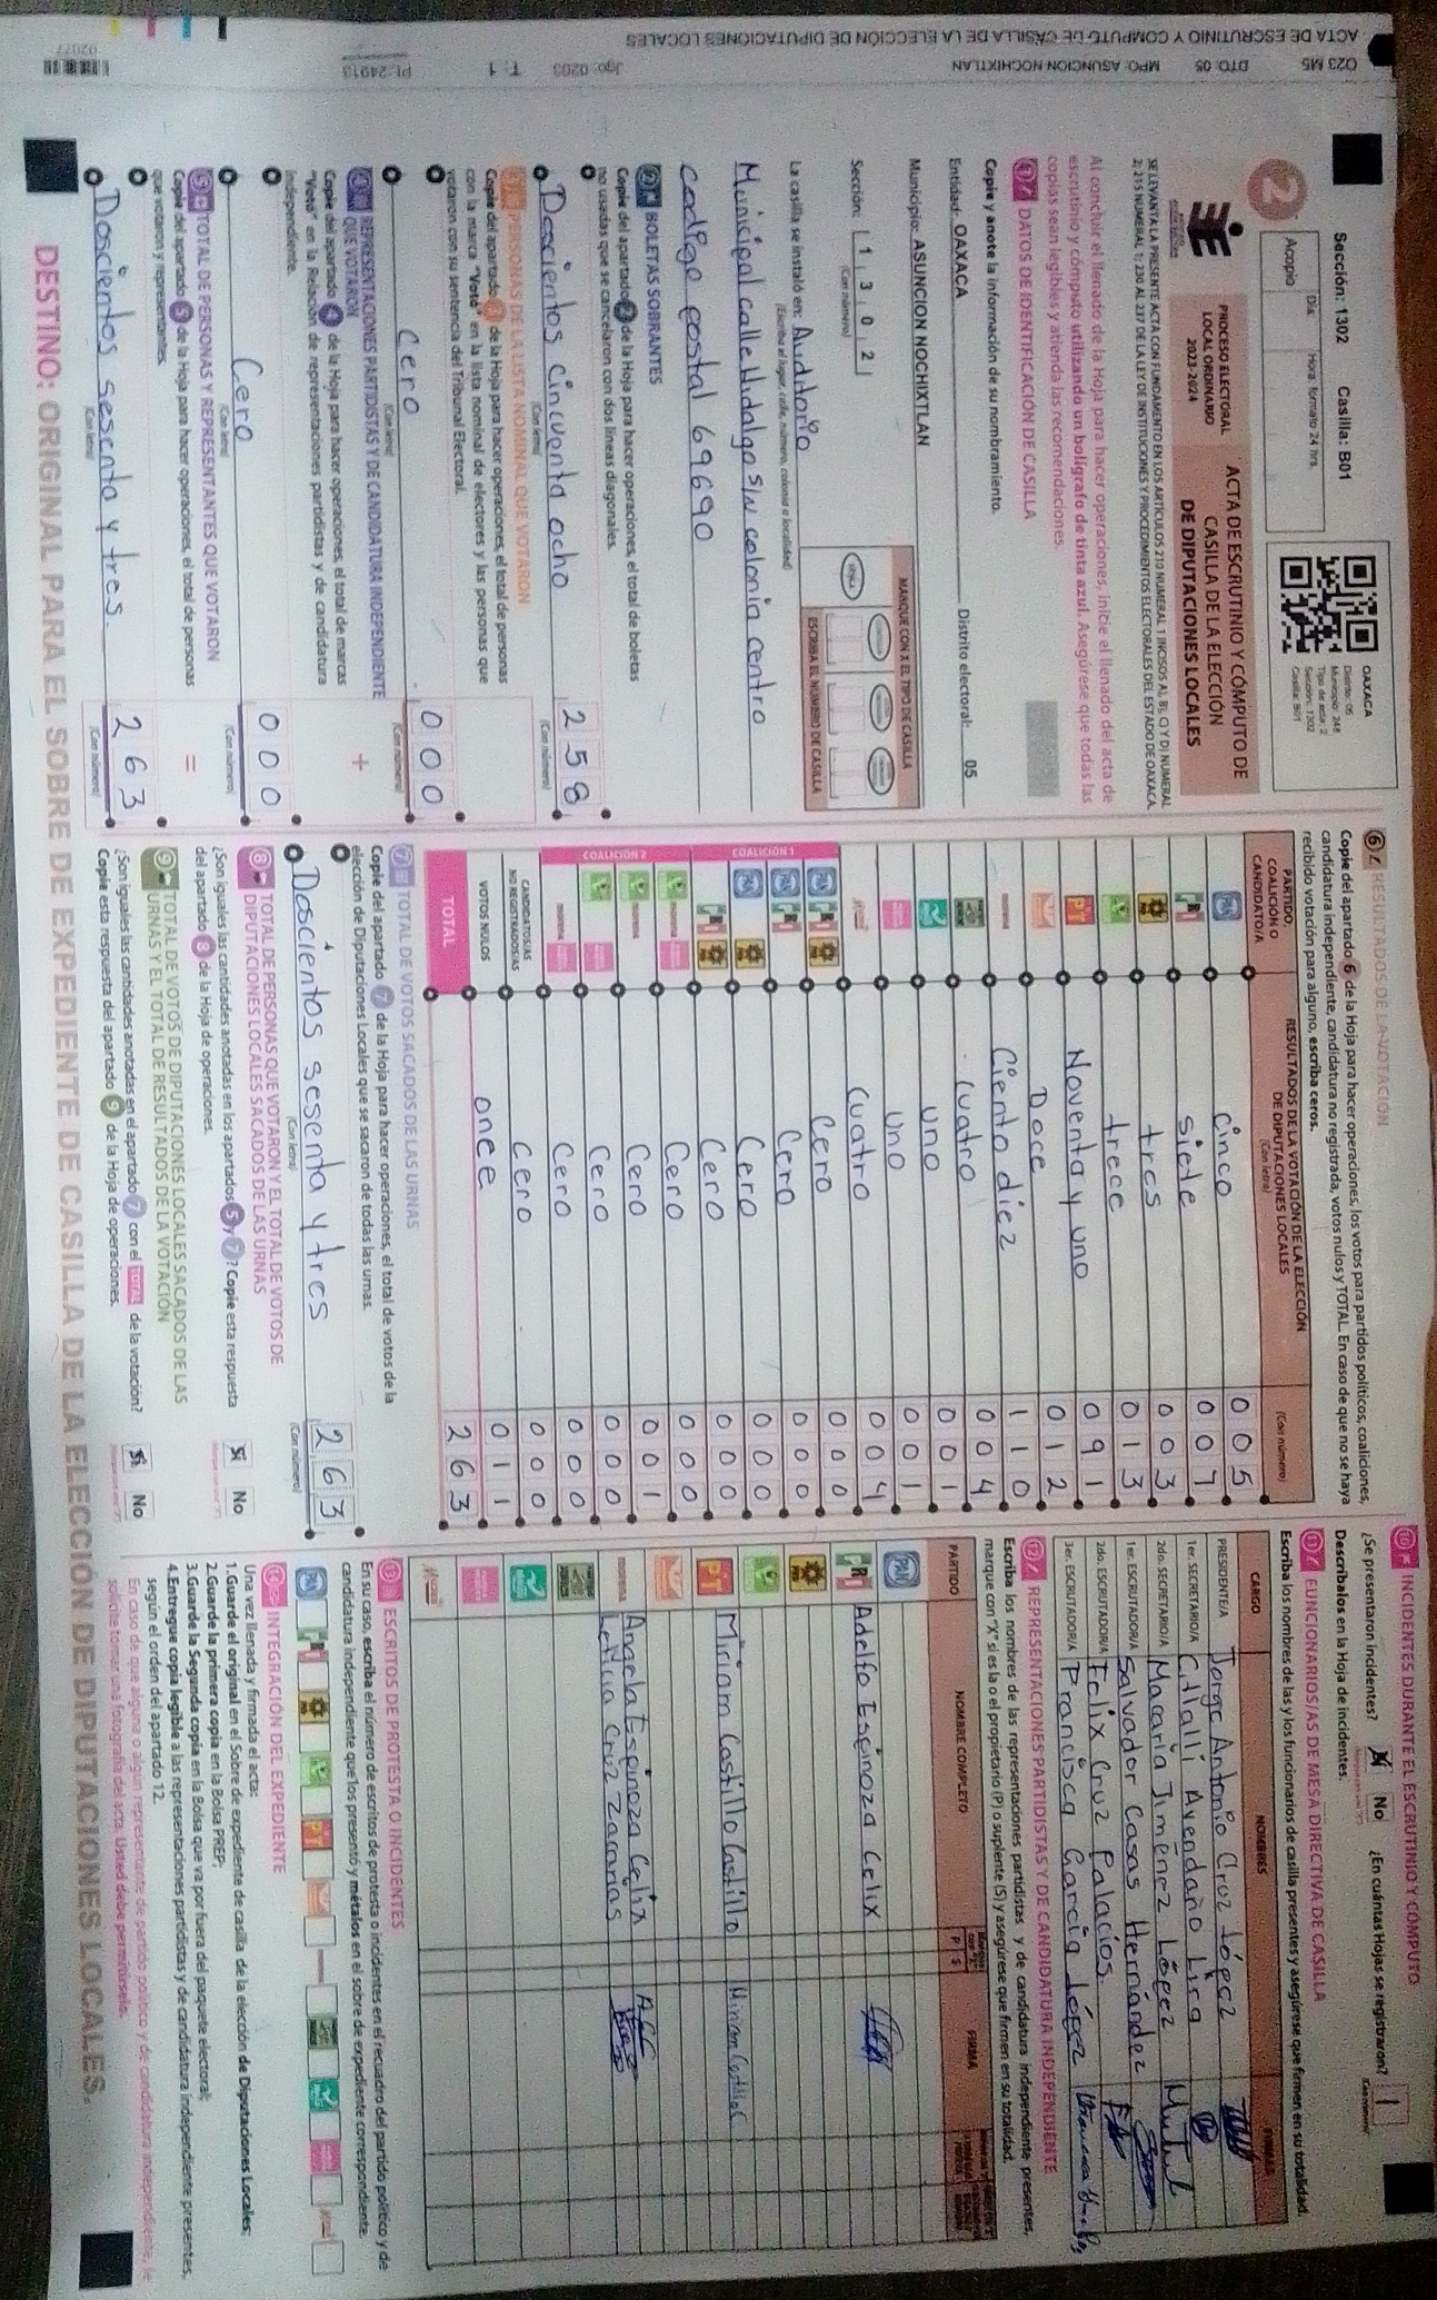 ACTA DE ESCRUTINIO Y COMPUTO DE CASILLA DE LA ELECCIÓN DE DIPUTACIONES LOCALES
O23 M5 DTO: 05 MPO: ASUNCION NOCHIXTLAN Jgo: 0205 T: 1
02077
Sección: 1302 Casilla: B01
2
Acopio
Día: Hora: formato 24 hrs.
OAXACA
Distrito: 05
Municipio: 248
Tipo de acta: 2
Sección: 1302
Casilla: B01
PROCESO ELECTORAL
LOCAL ORDINARIO
2023-2024
ACTA DE ESCRUTINIO Y CÓMPUTO DE
CASILLA DE LA ELECCIÓN
DE DIPUTACIONES LOCALES
SE LEVANTA LA PRESENTE ACTA CON FUNDAMENTO EN LOS ARTÍCULOS 210 NUMERAL 1 INCISOS A), B), C) Y D) NUMERAL
2; 215 NUMERAL 1; 230 AL 237 DE LA LEY DE INSTITUCIONES Y PROCEDIMIENTOS ELECTORALES DEL ESTADO DE OAXACA.
Al concluir el llenado de la Hoja para hacer operaciones, inicie el llenado del acta de
escrutinio y cómputo utilizando un bolígrafo de tinta azul. Asegúrese que todas las
copias sean legibles y atienda las recomendaciones.
1 DATOS DE IDENTIFICACIÓN DE CASILLA
Copie y anote la información de su nombramiento.
Entidad: OAXACA Distrito electoral: 05
Municipio: ASUNCION NOCHIXTLAN
Sección: 1 3 0 2
(Con número)
MARQUE CON X EL TIPO DE CASILLA
ESCRIBA EL NÚMERO DE CASILLA
La casilla se instaló en: Auditorio
(Escriba el lugar, calle, número, colonia o localidad)
Municipal calle Hidalgo S/N colonia centro
codigo postal 69690
2 BOLETAS SOBRANTES
Copie del apartado 2 de la Hoja para hacer operaciones, el total de boletas
no usadas que se cancelaron con dos líneas diagonales.
Doscientos cincuenta ocho 2 5 8
(Con letra) (Con número)
3 PERSONAS DE LA LISTA NOMINAL QUE VOTARON
Copie del apartado 3 de la Hoja para hacer operaciones, el total de personas
con la marca "Votó" en la lista nominal de electores y las personas que
votaron con su sentencia del Tribunal Electoral.
Cero 0 0 0
(Con letra) (Con número)
4 REPRESENTACIONES PARTIDISTAS Y DE CANDIDATURA INDEPENDIENTE
QUE VOTARON +
Copie del apartado 4 de la Hoja para hacer operaciones, el total de marcas
"Votó" en la Relación de representaciones partidistas y de candidatura
independiente.
Cero 0 0 0
(Con letra) (Con número)
5 TOTAL DE PERSONAS Y REPRESENTANTES QUE VOTARON =
Copie del apartado 5 de la Hoja para hacer operaciones, el total de personas
que votaron y representantes.
Doscientos sesenta y tres. 2 6 3
(Con letra) (Con número)
6 RESULTADOS DE LA VOTACIÓN
Copie del apartado 6 de la Hoja para hacer operaciones, los votos para partidos políticos, coaliciones,
candidatura independiente, candidatura no registrada, votos nulos y TOTAL. En caso de que no se haya
recibido votación para alguno, escriba ceros.
PARTIDO, COALICIÓN O CANDIDATO/A
RESULTADOS DE LA VOTACIÓN DE LA ELECCIÓN
DE DIPUTACIONES LOCALES
(Con letra) (Con número)
PAN cinco 0 0 5
PRI siete 0 0 7
PRD tres 0 0 3
trece 0 1 3
PT Noventa y uno 0 9 1
Doce 0 1 2
Ciento diez 1 1 0
cuatro 0 0 4
uno 0 0 1
uno 0 0 1
cuatro 0 0 4
COALICIÓN 1
PAN PRI PRD cero 0 0 0
PAN PRI cero 0 0 0
PAN PRD Cero 0 0 0
PRI PRD Cero 0 0 0
COALICIÓN 2
Cero 0 0 0
Cero 0 0 1
cero 0 0 0
Cero 0 0 0
CANDIDATOS/AS
NO REGISTRADOS/AS cero 0 0 0
VOTOS NULOS once 0 1 1
TOTAL 2 6 3
7 TOTAL DE VOTOS SACADOS DE LAS URNAS
Copie del apartado 7 de la Hoja para hacer operaciones, el total de votos de la
elección de Diputaciones Locales que se sacaron de todas las urnas.
Doscientos sesenta y tres 2 6 3
(Con letra) (Con número)
8 TOTAL DE PERSONAS QUE VOTARON Y EL TOTAL DE VOTOS DE
DIPUTACIONES LOCALES SACADOS DE LAS URNAS
¿Son iguales las cantidades anotadas en los apartados 5 y 7? Copie esta respuesta
del apartado 8 de la Hoja de operaciones. Sí No
9 TOTAL DE VOTOS DE DIPUTACIONES LOCALES SACADOS DE LAS
URNAS Y EL TOTAL DE RESULTADOS DE LA VOTACIÓN
¿Son iguales las cantidades anotadas en el apartado 7 con el TOTAL de la votación?
Copie esta respuesta del apartado 9 de la Hoja de operaciones. Sí No
10 INCIDENTES DURANTE EL ESCRUTINIO Y CÓMPUTO
¿Se presentaron incidentes? Sí No ¿En cuántas Hojas se registraron? 1
Descríbalos en la Hoja de incidentes.
11 FUNCIONARIOS/AS DE MESA DIRECTIVA DE CASILLA
Escriba los nombres de las y los funcionarios de casilla presentes y asegúrese que firmen en su totalidad.
CARGO NOMBRES FIRMAS
PRESIDENTE/A Jorge Antonio Cruz López
1er. SECRETARIO/A Citlalli Avendaño Lira
2do. SECRETARIO/A Macaria Jiménez López
1er. ESCRUTADOR/A Salvador Casas Hernández
2do. ESCRUTADOR/A Felix Cruz Palacios.
3er. ESCRUTADOR/A Francisca García López
12 REPRESENTACIONES PARTIDISTAS Y DE CANDIDATURA INDEPENDIENTE
Escriba los nombres de las representaciones partidistas y de candidatura independiente presentes,
marque con "X" si es la o el propietario (P) o suplente (S) y asegúrese que firmen en su totalidad.
PARTIDO NOMBRE COMPLETO P S FIRMA
PAN
PRI Adelfo Espinoza Celix
PRD
PT Miriam Castillo Castillo
Angela Espinoza Celix AEC
Leticia Cruz Zacarias
13 ESCRITOS DE PROTESTA O INCIDENTES
En su caso, escriba el número de escritos de protesta o incidentes en el recuadro del partido político y de
candidatura independiente que los presentó y métalos en el sobre de expediente correspondiente.
14 INTEGRACIÓN DEL EXPEDIENTE
Una vez llenada y firmada el acta:
1.Guarde el original en el Sobre de expediente de casilla de la elección de Diputaciones Locales;
2.Guarde la primera copia en la Bolsa PREP;
3.Guarde la Segunda copia en la Bolsa que va por fuera del paquete electoral;
4.Entregue copia legible a las representaciones partidistas y de candidatura independiente presentes,
según el orden del apartado 12.
En caso de que alguna o algún representante de partido político y de candidatura independiente, le
solicite tomar una fotografía del acta. Usted debe permitírselo.
DESTINO: ORIGINAL PARA EL SOBRE DE EXPEDIENTE DE CASILLA DE LA ELECCIÓN DE DIPUTACIONES LOCALES.